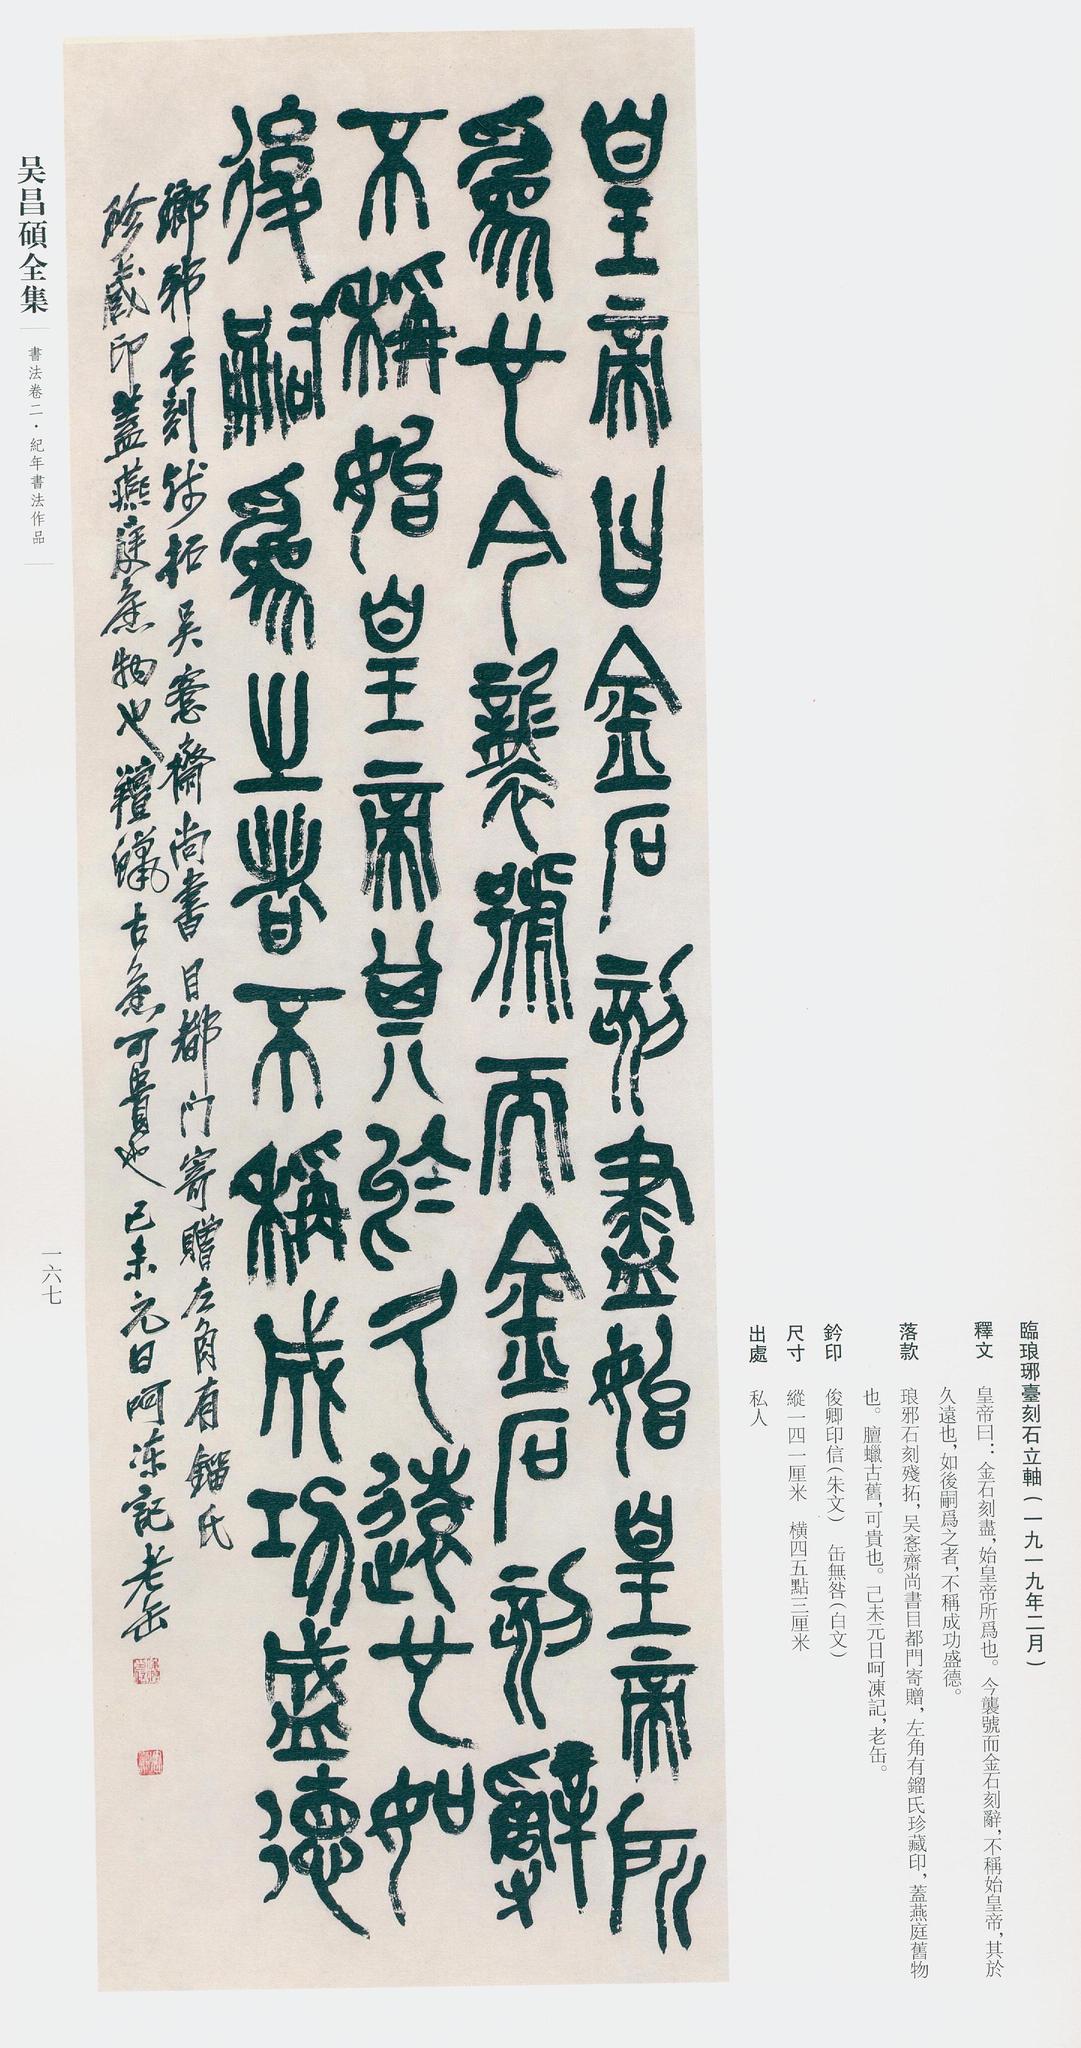 臨琅琊臺刻石立軸（一九一九年二月）
釋文　皇帝曰：金石刻盡，始皇帝所爲也。今襲號而金石刻辭，不稱始皇帝，其於
久遠也，如後嗣爲之者，不稱成功盛德。
落款　琅邪石刻殘拓，吴愙齋尚書目都門寄贈，左角有鎦氏珍藏印，蓋燕庭舊物
也。膻蠟古舊，可貴也。己未元日呵凍記，老缶。
鈐印　俊卿印信（朱文）　缶無咎（白文）
尺寸　縱一四一厘米　橫四五點三厘米
出處　私人
皇帝曰金石刻盡始皇帝所
爲也今襲號而金石刻辭
不稱始皇帝其於久遠也如
後嗣爲之者不稱成功盛德
瑯邪石刻殘拓吴愙齋尚書目都門寄贈左角有鎦氏
珍藏印蓋燕庭舊物也羶蠟古舊可貴也己未元日呵凍記老缶
吴昌碩全集
書法卷二·紀年書法作品
一六七